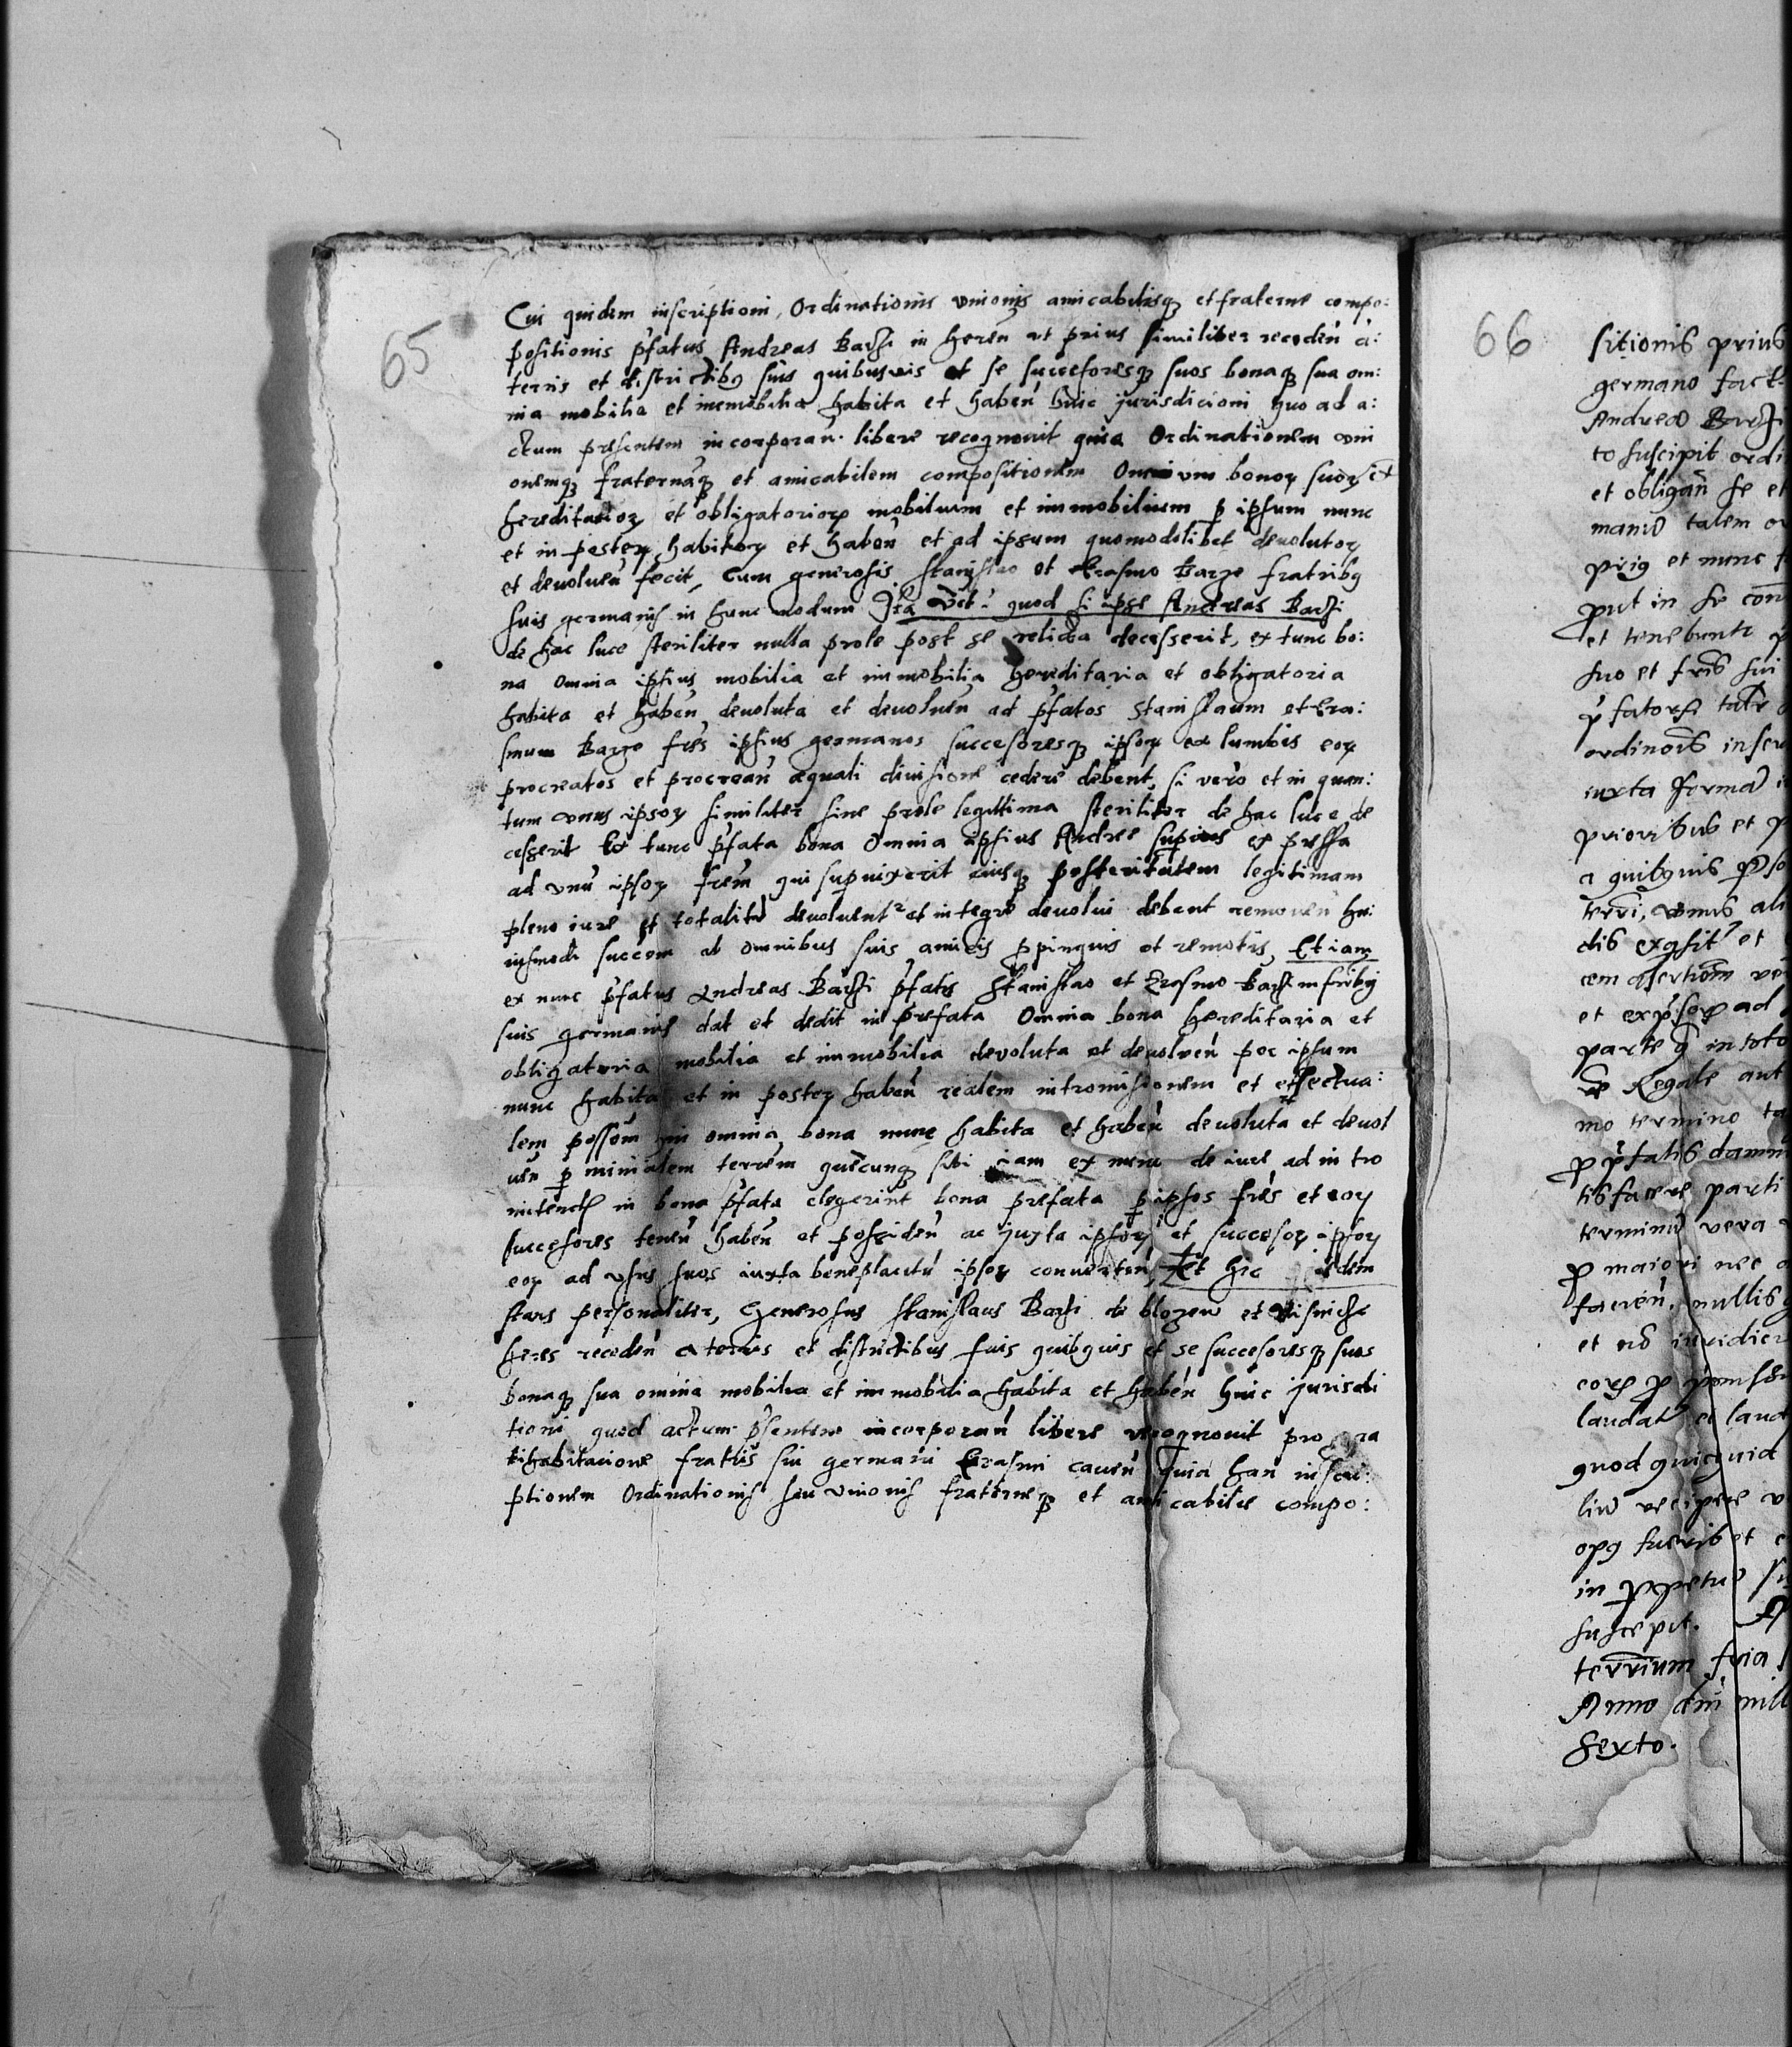 65
Cui quidem inscriptioni, Ordinationis vnionis amicabilisq et fraterne compo:
positionis pfatus Andreas Barzi in heren ut prius similiter receden a:
ternis et districtibq suis quibusvis et se succesoresq suos bonaq sua om:
nia mobilia et inmobilia habita et haben huic jurisdicioni quo ad a:
ctum presentem incorporan libere recognouit quia Ordinationem vni
onemq fraternaq et amicabilem compositionem Omnium bonor suor et
hereditarior et obligatoriorp mobilium et immobilium p ipsum nunc
et in poster habitor et haben et ad ipsum quomodolibet deuolutor
et deuoluen fecit, Cum generosis Stanislao et Erasmo Barze fratribq
suis germanis in hunc modum Ita Vet: quod si ipse Andreas Barzi
de hac luce steriliter nulla prole post se relicta decesserit, ex tunc bo:
na omnia ipsius mobilia et immobilia hereditaria et obligatoria
habita et haben deuoluta et deuoluen ad pfatos Stanislaum et Era:
smum Barze fres ipsius germanos succesoresq ipsor ex lumbis eor
procreatos et procrean aequali diuisione cedere debent, si vero et in quan:
tum vnus ipsor similiter sine prole legittima steriliter de hac luce de
cesserit Ex tunc pfata bona Omnia ipsius Andree superius expressa
ad vnu ipsor frem qui supuixerit eiusq posteritatem legitimam
pleno iure et totalite deuoluent et integre deuolui debent remouen hu:
iusmodi succem ab omnibus suis amicis ppinquis et remotis, Et iam
ex nunc pfatus Andreas Barzi pfatis Stanislao et Erasmo Barzi fribq
suis germanis dat et dedit in prefata Omnia bona hereditaria et
obligatoria mobilia et immobilia devoluta et devoluen per ipsum
nunc habita et in poster haben realem intromissionem et effectua:
lem possom in omnia bona nunc habita et haben deuoluta et deuol
uen p minialem terrem quecunq sibi iam ex nunc de iure ad intro
mitend in bona pfata elegerint bona prefata p ipsos fres et eor
succesores tenen haben et possiden ac juxta ipsor et succesor ipsor
eor ad vsus suos iuxta beneplacitu ipsor conuerten, Et hic idem
stans personaliter, Generosus Stanislaus Barzi de blozew et
heres receden a ternis et districtibus suis quibquis et se succesoresq suos
bonaq sua omnia mobilia et immobilia habita et haben huic jurisdi
tioni quod actum psentem incorporan libere recognouit pro ra
tihabitacione fratris sui germani Erasmi cauen quia han inscri:
ptionem Ordinationis seu vnionis fraterneq et amicabilis compo:
66
sitionis prius
germano fact
Andrea Barzi
to suscipit ordi
et obligan se et
manus talem or
priq et nunc
put in se con
et tenebuntr
suo et fris sui
pfatorp tale
ordinois inser
iuxta forma
prioribus et p
a quibquis pso
terri, vnus ali
dis exgsit et
cem asertiom
et expsorp ad
parte q in toto
Regale aut
mo termino ta
p pfatis damn
tisfacere parti
terminu vera
p maiori nec
facren, nullis
et no
corp p
laudat et laud
quod quicquid
liu recipere v
opq fuerit et
in ppetuu su
suscepit. A
terrium feria
Anno dni mill
Sexto.